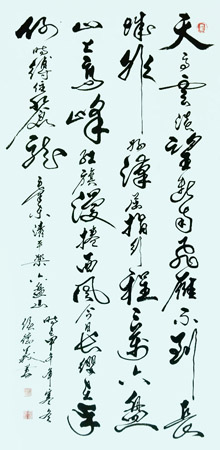 天高雲淡望斷南飛雁不到長
城非好漢屈指行程二萬六盤
山上高峰紅旗漫捲西風今日長纓在手
何時縛住蒼龍
毛澤東清平樂六盤山
甲午年寒冬